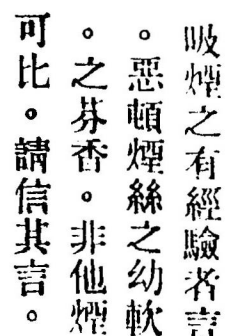 吸煙之有經驗者言
。惡頓煙絲之幼軟
。之芬香。非他煙
可比。請信其言。